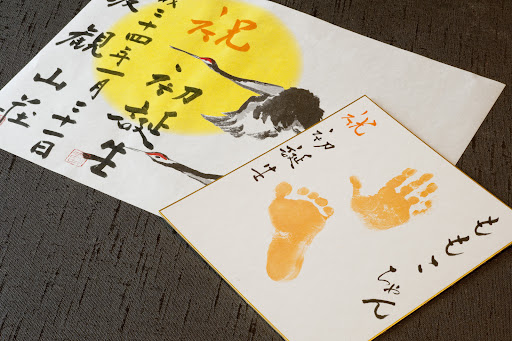 祝
初誕生
十四年一月三十一日
観山荘
祝
初誕生
ももこちゃん